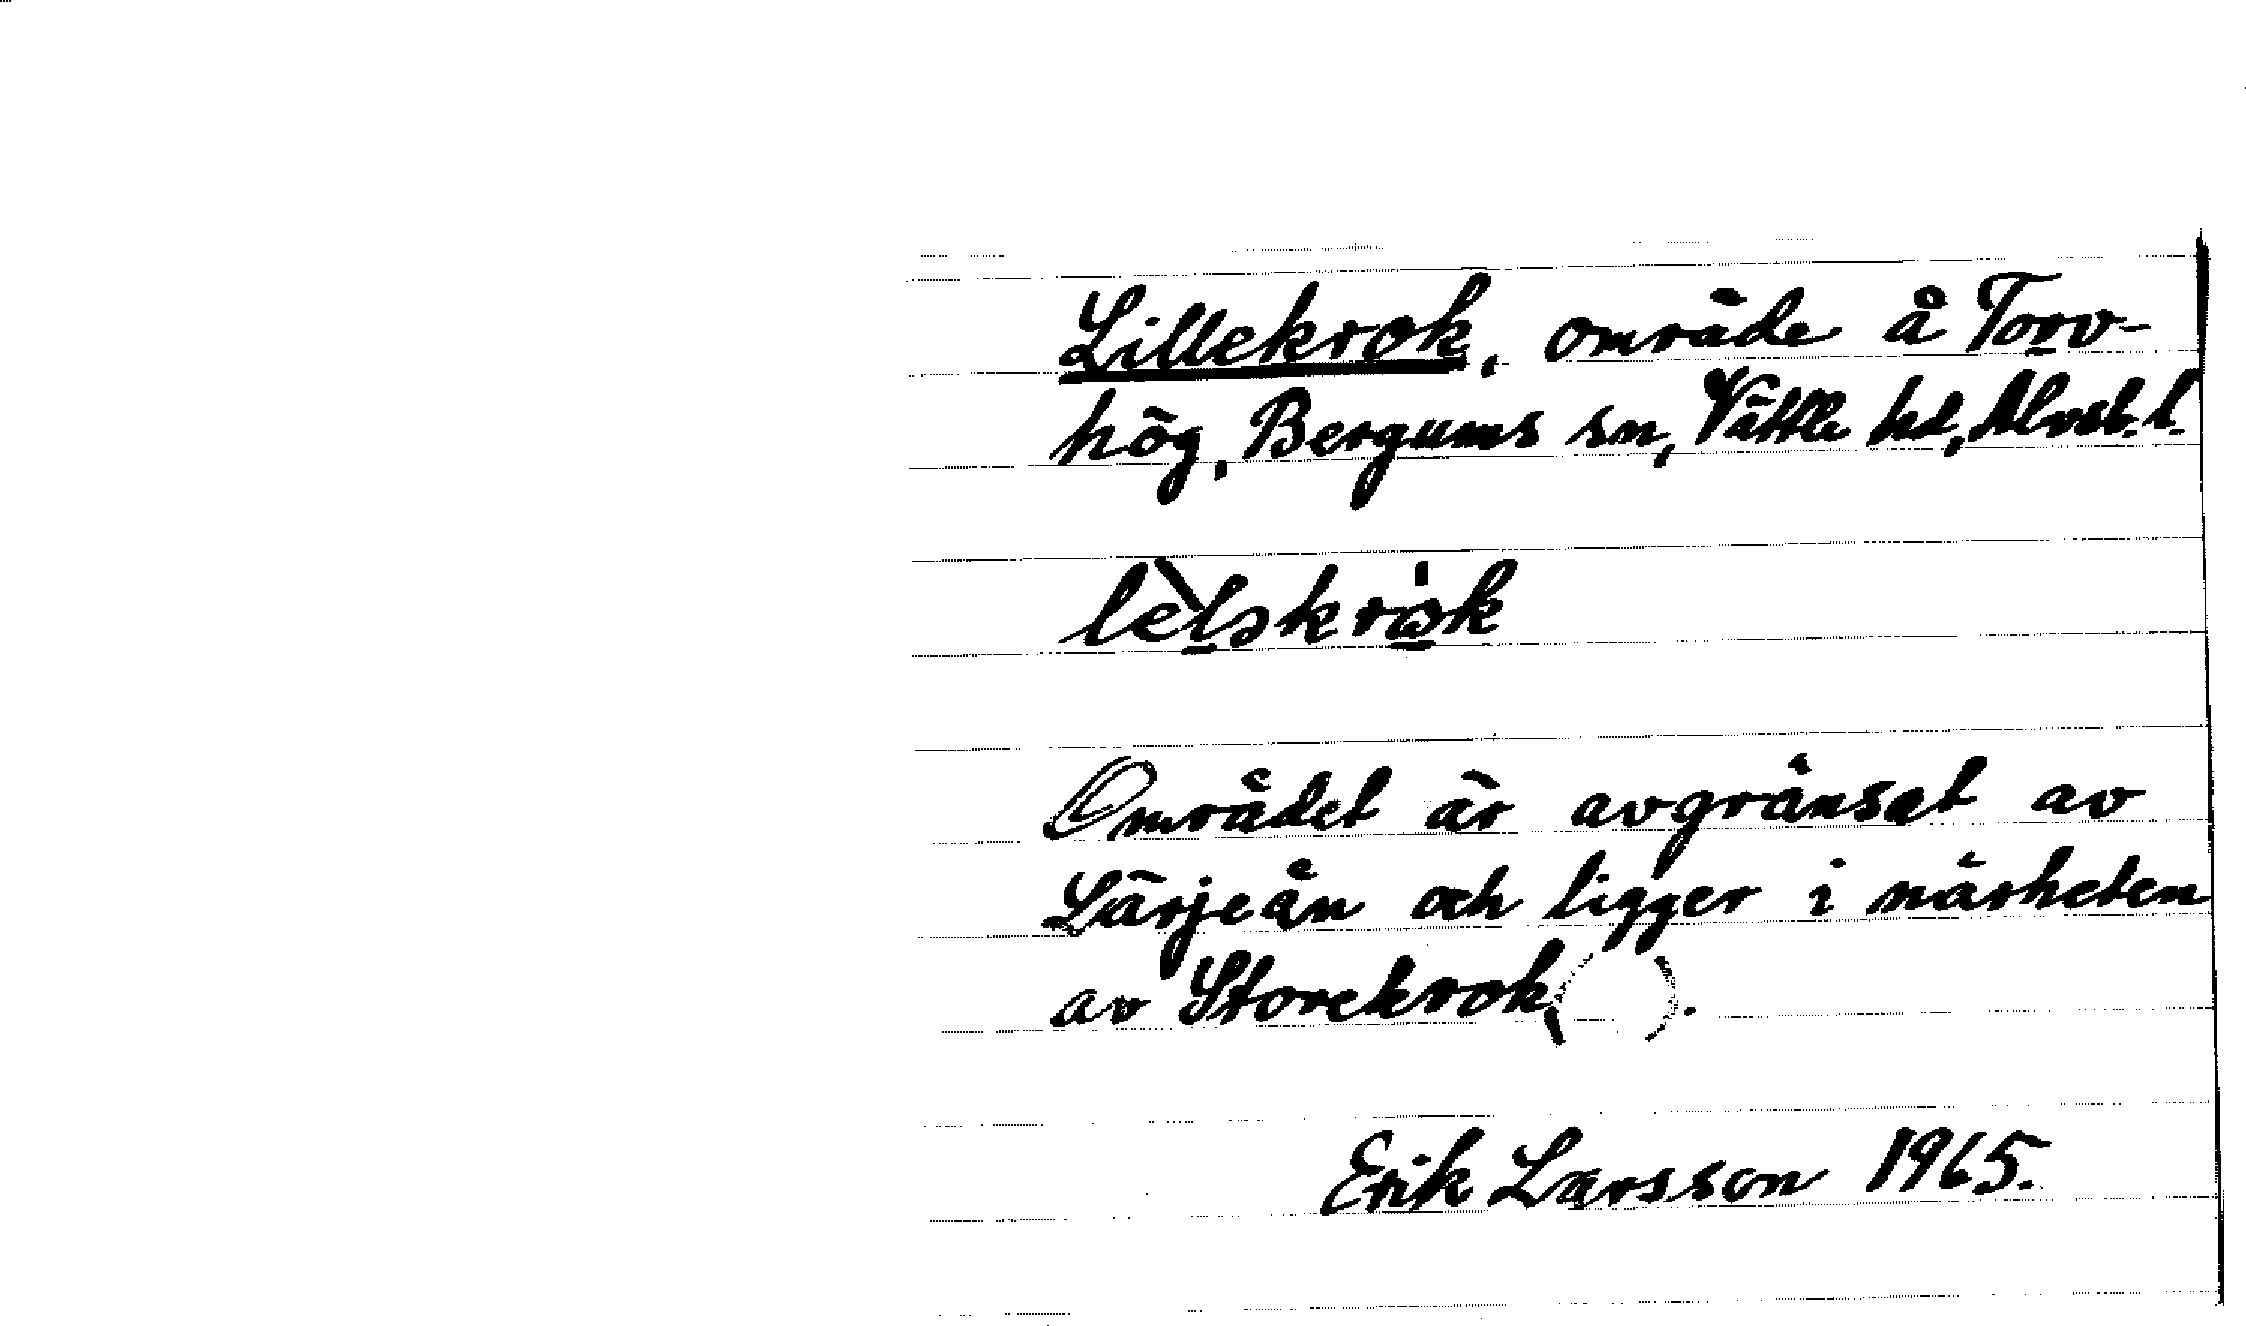 Lillekrok, område å Torv-
hög, Bergums sn, Vättle hd, Älvsb. l.
lèl̲əkrò̲k
Området är avgränsat av
Lärjeån och ligger i närheten
av Storekrok ( ).
Erik Larsson 1965.